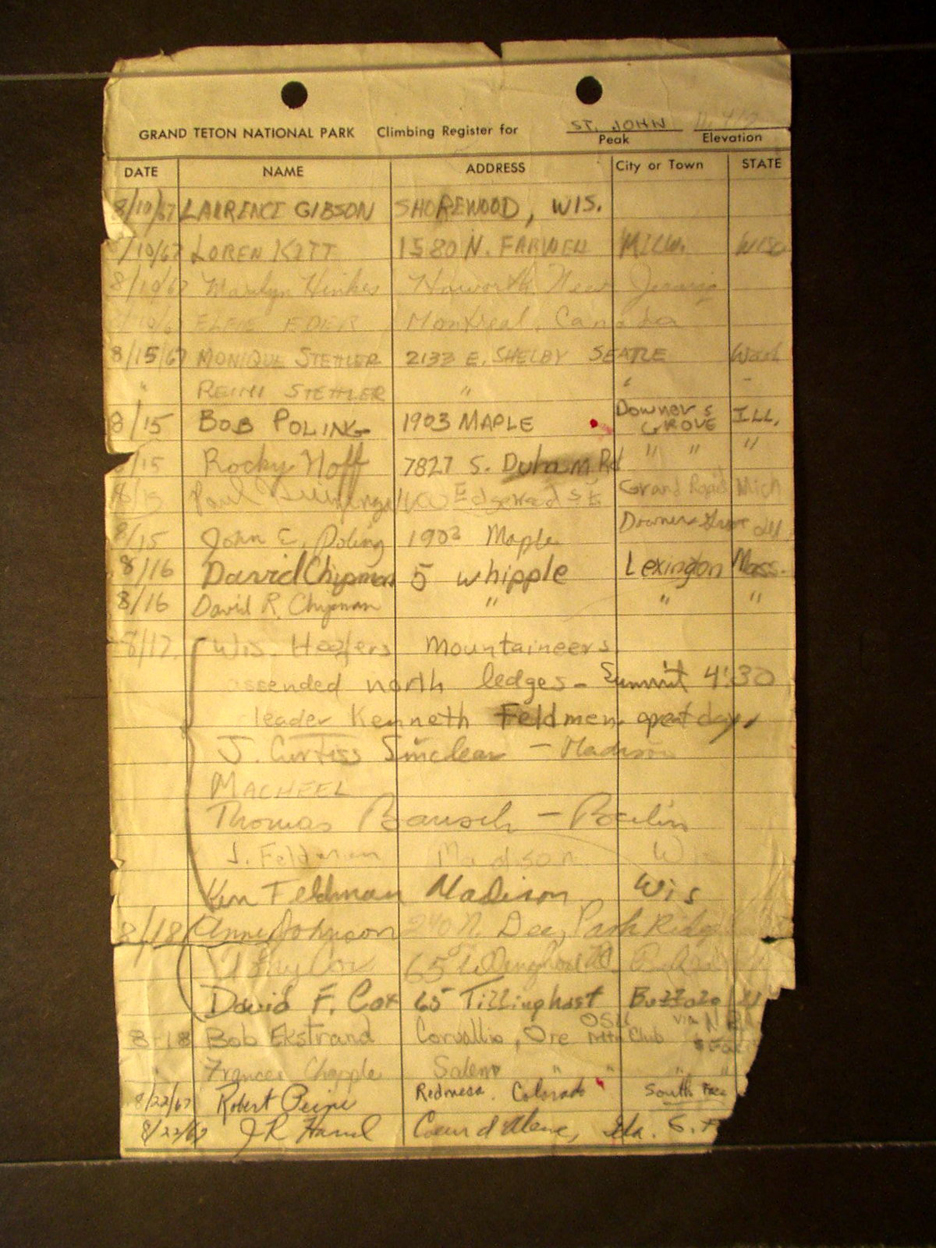 GRAND TETON NATIONAL PARK Climbing Register for ST. JOHN
Peak Elevation
DATE NAME ADDRESS City or Town STATE
8/10/67 LAURENCE GIBSON SHOREWOOD, WIS.
8/10/67 LOREN KITT 1580 N. FARWELL MILW. WISC
8/10/67 Marilyn Hinkes Haworth New Jersey
8/10/6 ELFIE EDER Montreal, Canada
8/15/67 MONIQUE STETTLER 2133 E. SHELBY SEATLE Wash
" REINI STETTLER " " "
8/15 BOB POLING 1903 MAPLE DOWNERS GROVE ILL.
8/15 Rocky Hoff 7827 S. Duham Rd " " "
Paul Edgewood SE Grand Rapid Mich
8/15 John E. Poling 1903 Maple Downers Grove Ill.
8/16 David Chipman 5 whipple Lexington Mass.
8/16 David R. Chipman " " "
8/17 Wis. Hoofers Mountaineers
ascended north ledges - Summit 4:30
leader Kenneth Feldmen great day,
J. Curtiss Sinclear - Madison
MACHEEL
Thomas Bausch - Berlin
J. Feldman Madison Wis
Ken Feldman Madison Wis
8/18 Anne Johnson 240 N. Dee, Park Ridge
Cox 65
David F. Cox 65 Tillinghast Buffalo
8-18 Bob Ekstrand Corvallis, Ore OSU Mtn Club via
" Frances Chapple Salem " " "
8/22/67 Robert Colorado South Face
8/22/67 J R Coeur d Alene, Ida. S. F